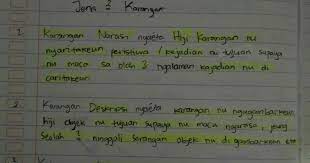 Jenis 2 Karangan
1. Karangan Narasi nyaéta Hiji karangan nu
nyaritakeun peristiwa / kejadian nu tujuan supaya
nu maca sa olah 2 ngalaman kajadian nu di
caritakeun
2. Karangan Deskripsi nyaéta karangan nu ngagambarkeun
hiji objek nu tujuan supaya nu maca ngarasa, jeung
seolah 2 ninggali sorangan objek nu digambarkeun